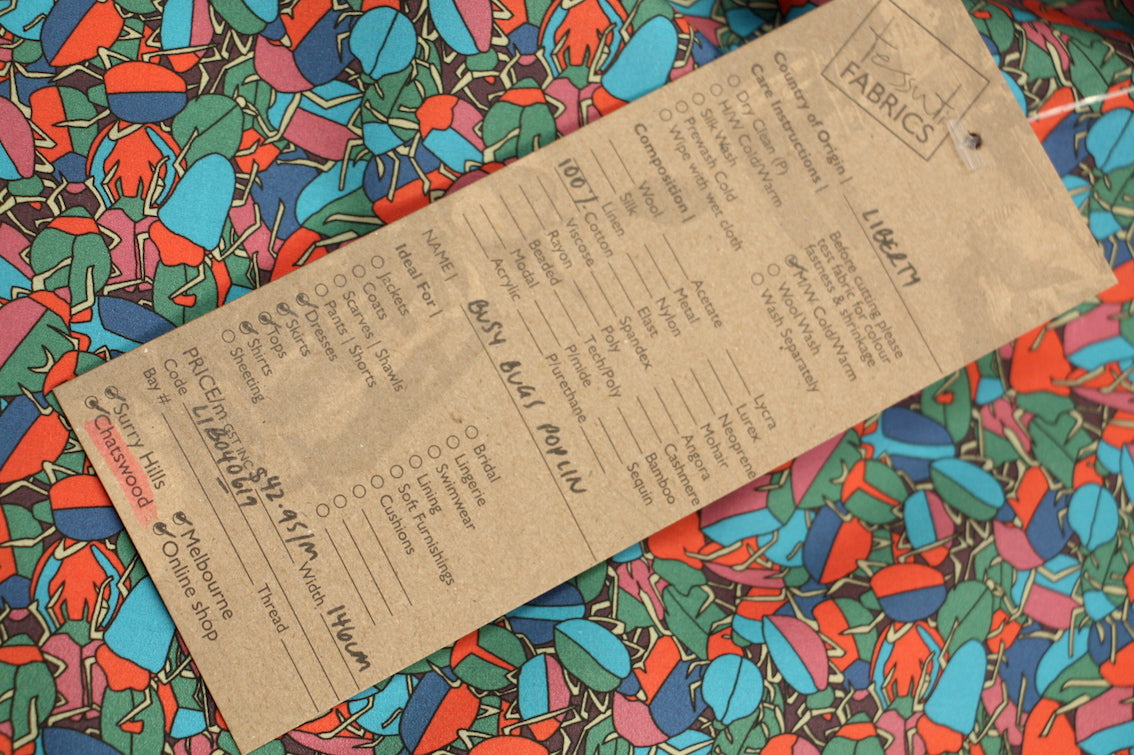 tessuti
FABRICS
Country of Origin | LIBERTY
Care Instructions |
Before cutting please
test fabric for colour
fastness & shrinkage
Dry Clean (P)
H/W Cold/Warm
Silk Wash
Prewash Cold
Wipe with wet cloth
M/W Cold/Warm
Wool Wash
Wash Separately
Composition |
Wool
Silk
Linen
100% Cotton
Viscose
Rayon
Beaded
Modal
Acrylic
Acetate
Metal
Nylon
Elast
Spandex
Poly
Tech/Poly
Pimide
Plurethane
Lycra
Lurex
Neoprene
Mohair
Angora
Cashmere
Bamboo
Sequin
NAME | BUSY BUGS POPLIN
Ideal For |
Jackets
Coats
Scarves | Shawls
Pants | Shorts
Dresses
Skirts
Tops
Shirts
Sheeting
Bridal
Lingerie
Swimwear
Lining
Soft Furnishings
Cushions
PRICE/m GST INC $42.95/M Width. 146cm
Code LIB040619
Bay # Thread
Surry Hills
Chatswood
Melbourne
Online shop